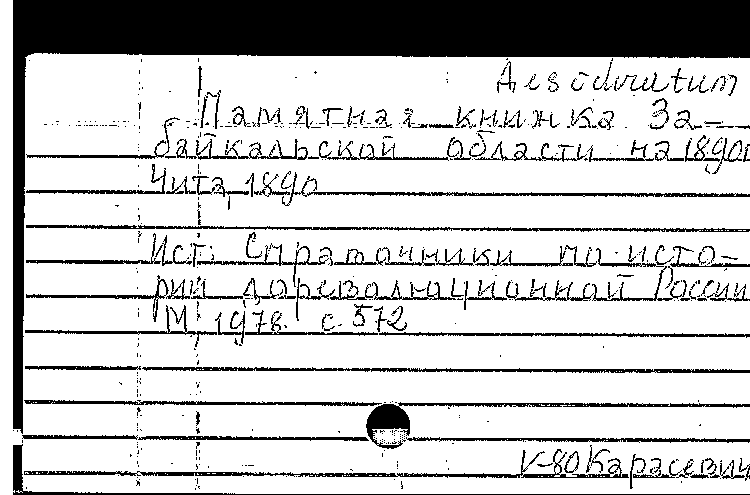 Desideratum
Памятная книжка За-
байкальской области на 1890г
Чита, 1890
Ист: Справочники по исто-
рии дореволюционной России
М, 1978. с. 572
V-80 Карасевич